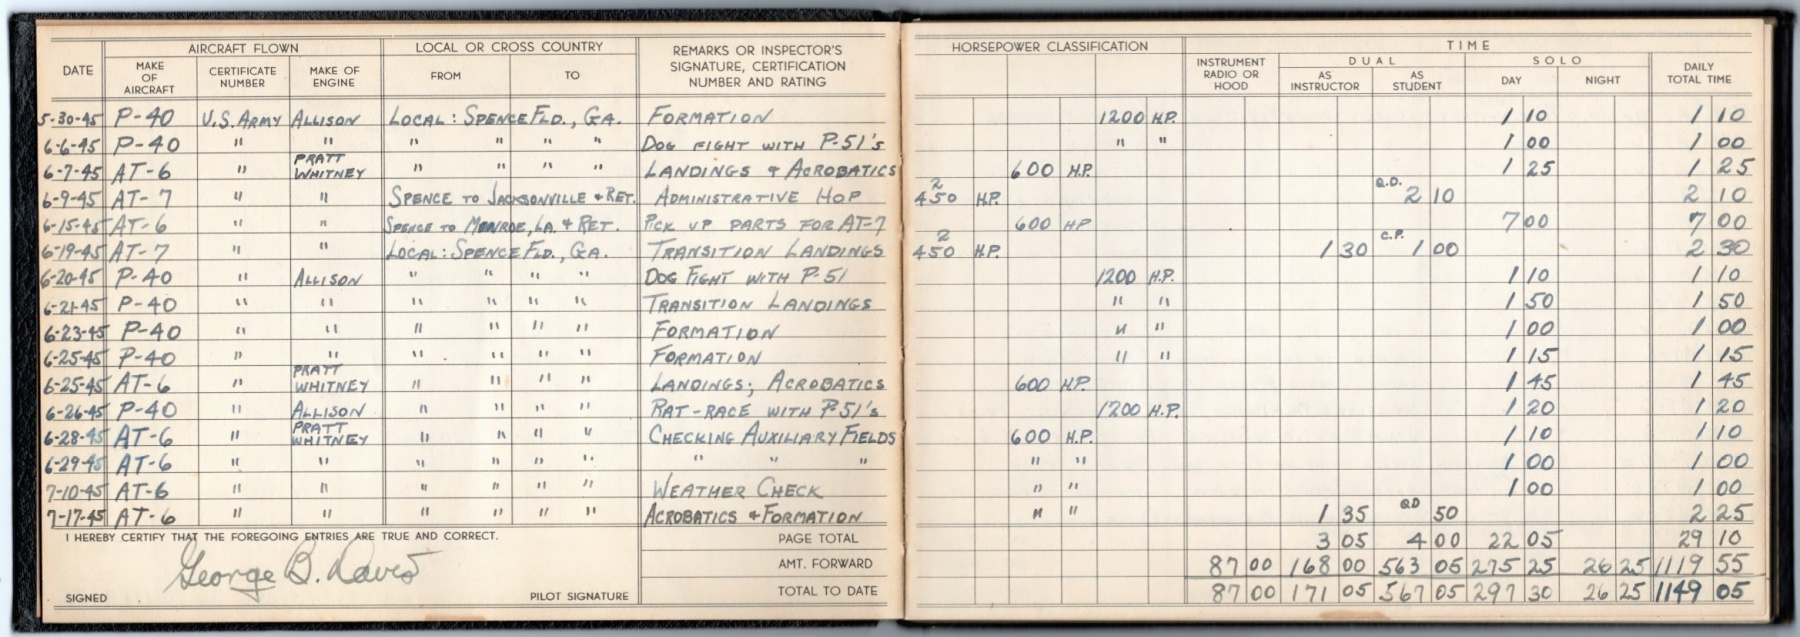 AIRCRAFT FLOWN LOCAL OR CROSS COUNTRY REMARKS OR INSPECTOR'S SIGNATURE, CERTIFICATION NUMBER AND RATING HORSEPOWER CLASSIFICATION TIME
DATE MAKE OF AIRCRAFT CERTIFICATE NUMBER MAKE OF ENGINE FROM TO INSTRUMENT RADIO OR HOOD DUAL SOLO DAILY TOTAL TIME
AS INSTRUCTOR AS STUDENT DAY NIGHT
5-30-45 P-40 U.S. ARMY ALLISON LOCAL: SPENCE FLD., GA. FORMATION 1200 H.P. 1 10 1 10
6-6-45 P-40 " " " " " " DOG FIGHT WITH P-51's " " 1 00 1 00
6-7-45 AT-6 " PRATT WHITNEY " " " " LANDINGS & ACROBATICS 600 H.P. 1 25 1 25
6-9-45 AT-7 " " SPENCE TO JACKSONVILLE & RET. ADMINISTRATIVE HOP 2 450 H.P. Q.D. 2 10 2 10
6-15-45 AT-6 " " SPENCE TO MONROE, LA. & RET. PICK UP PARTS FOR AT-7 600 HP 7 00 7 00
6-19-45 AT-7 " " LOCAL: SPENCE FLD., GA. TRANSITION LANDINGS 2 450 H.P. 1 30 C.P. 1 00 2 30
6-20-45 P-40 " ALLISON " " " " DOG FIGHT WITH P-51 1200 H.P. 1 10 1 10
6-21-45 P-40 " " " " " " TRANSITION LANDINGS " " 1 50 1 50
6-23-45 P-40 " " " " " " FORMATION " " 1 00 1 00
6-25-45 P-40 " " " " " " FORMATION " " 1 15 1 15
6-25-45 AT-6 " PRATT WHITNEY " " " " LANDINGS; ACROBATICS 600 H.P. 1 45 1 45
6-26-45 P-40 " ALLISON " " " " RAT-RACE WITH P-51's 1200 H.P. 1 20 1 20
6-28-45 AT-6 " PRATT WHITNEY " " " " CHECKING AUXILIARY FIELDS 600 H.P. 1 10 1 10
6-29-45 AT-6 " " " " " " " " " " " 1 00 1 00
7-10-45 AT-6 " " " " " " WEATHER CHECK " " 1 00 1 00
7-17-45 AT-6 " " " " " " ACROBATICS & FORMATION " " 1 35 QD 50 2 25
I HEREBY CERTIFY THAT THE FOREGOING ENTRIES ARE TRUE AND CORRECT. PAGE TOTAL 3 05 4 00 22 05 29 10
George B. Davis AMT. FORWARD 87 00 168 00 563 05 275 25 26 25 1119 55
SIGNED PILOT SIGNATURE TOTAL TO DATE 87 00 171 05 567 05 297 30 26 25 1149 05